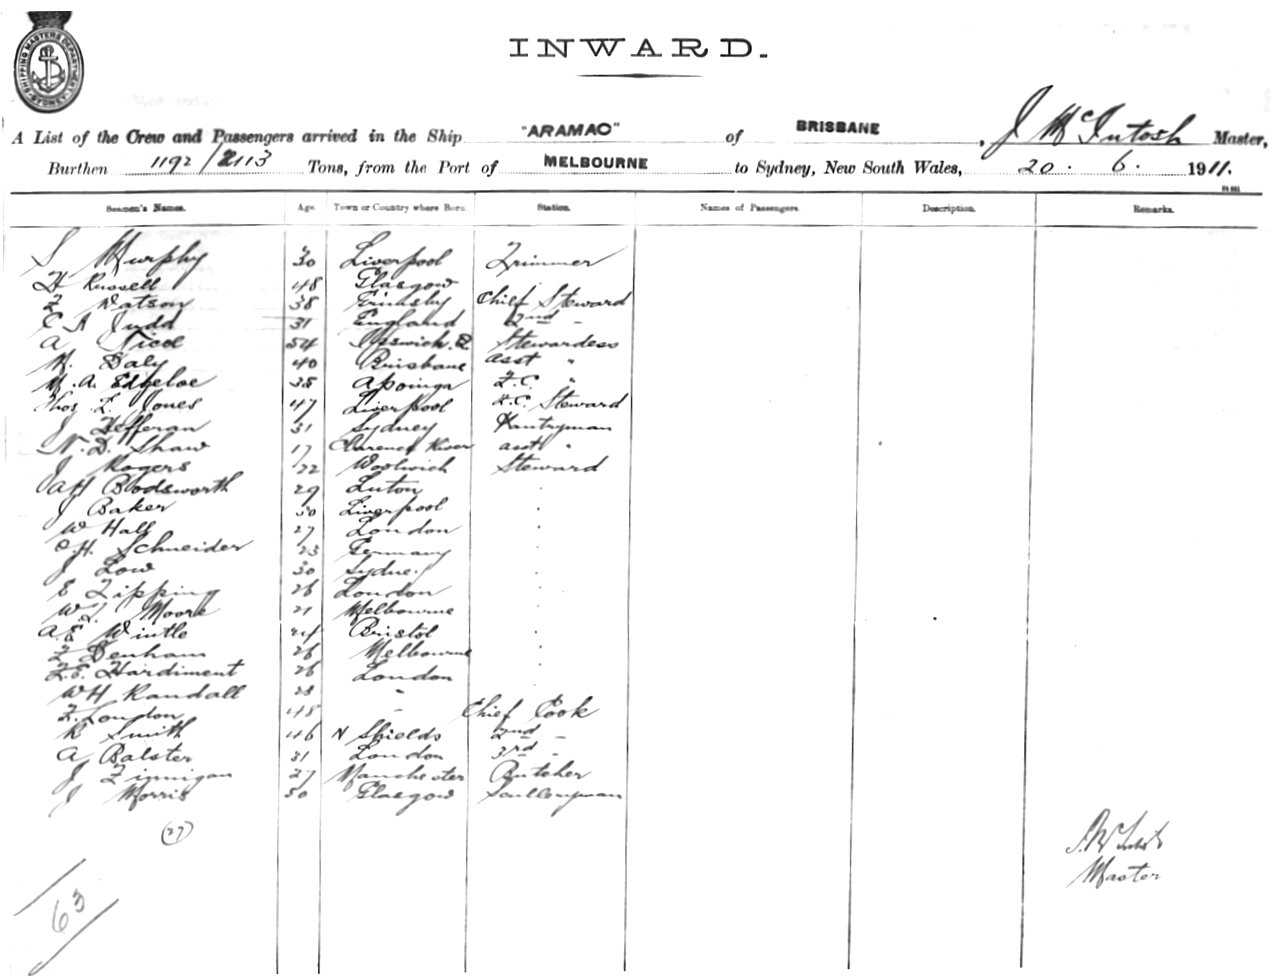 SHIPPING MASTERS DEPARTMENT SYDNEY
INWARD.
A List of the Crew and Passengers arrived in the Ship "ARAMAC" of BRISBANE, J McIntosh Master,
Burthen 1192/2113 Tons, from the Port of MELBOURNE to Sydney, New South Wales, 20. 6. 1911.
Seamen's Names. Age Town or Country where Born. Station. Names of Passengers Description. Remarks.
S Murphy 30 Liverpool Trimmer
H Russell 48 Glasgow "
F Watson 38 Grimsby Chief Steward
C A Judd 31 England 2nd "
A Nicol 54 Ipswich Q Stewardess
M. Daly 40 Brisbane asst "
M. A. Edgeloe 38 Apoinga F.C. "
Thos L. Jones 47 Liverpool F.C. Steward
J Hefferan 31 Sydney Pantryman
N. D. Shaw 17 Clarence River asst "
J Rogers 22 Woolwich Steward
A H Bodsworth 29 Luton "
J Baker 30 Liverpool "
W Hall 27 London "
C. H. Schneider 23 Germany "
J Low 30 Sydney "
E Tipping 26 London "
W J Moore 21 Melbourne "
A. E Wintle 24 Bristol "
F Denham 26 Melbourne "
F. E. Hardiment 26 London "
W H Randall 23 " "
F. London 48 " Chief Cook
R Smith 46 N Shields 2nd "
A Balster 31 London 3rd "
J Finnigan 27 Manchester Butcher
J Morris 50 Glasgow Sculleryman
(27)
J. McIntosh
Master
63